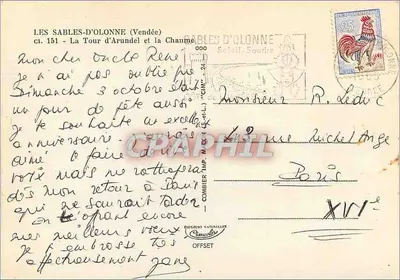 LES SABLES-D'OLONNE (Vendée)
CI. 151 - La Tour d'Arundel et la Chaume
SABLES D'OLONNE
Soleil-Sourire
mon cher oncle René
je n'ai pas oublié que
Dimanche 3 octobre était
un jour de fête aussi
je te souhaite un excellent
anniversaire. J'aurais
aimé le faire de
voix mais me rattraperai
dès mon retour à Paris
qui ne saurait tarder
en t'offrant encore
mes meilleurs vœux
je t'embrasse très
affectueusement
Monsieur R. Leduc
rue Michel Ange
Paris
XVIe
CPARAMA.COM
COMBIER IMP. MACON
"CIM"
OFFSET